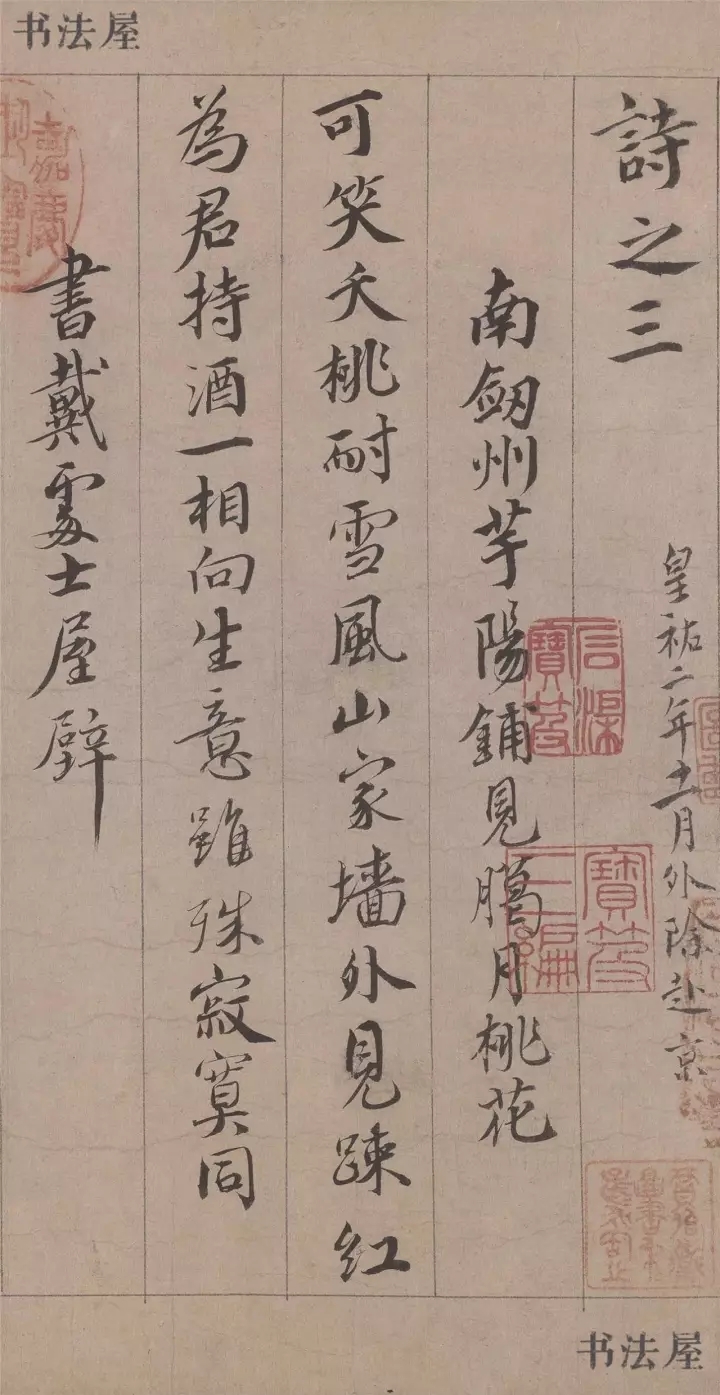 书法屋
詩之三
皇祐二年十一月外除赴京
南劔州芋陽鋪見臈月桃花
可笑夭桃耐雪風山家墻外見踈紅
為君持酒一相向生意雖殊寂寞同
書戴處士屋壁
书法屋